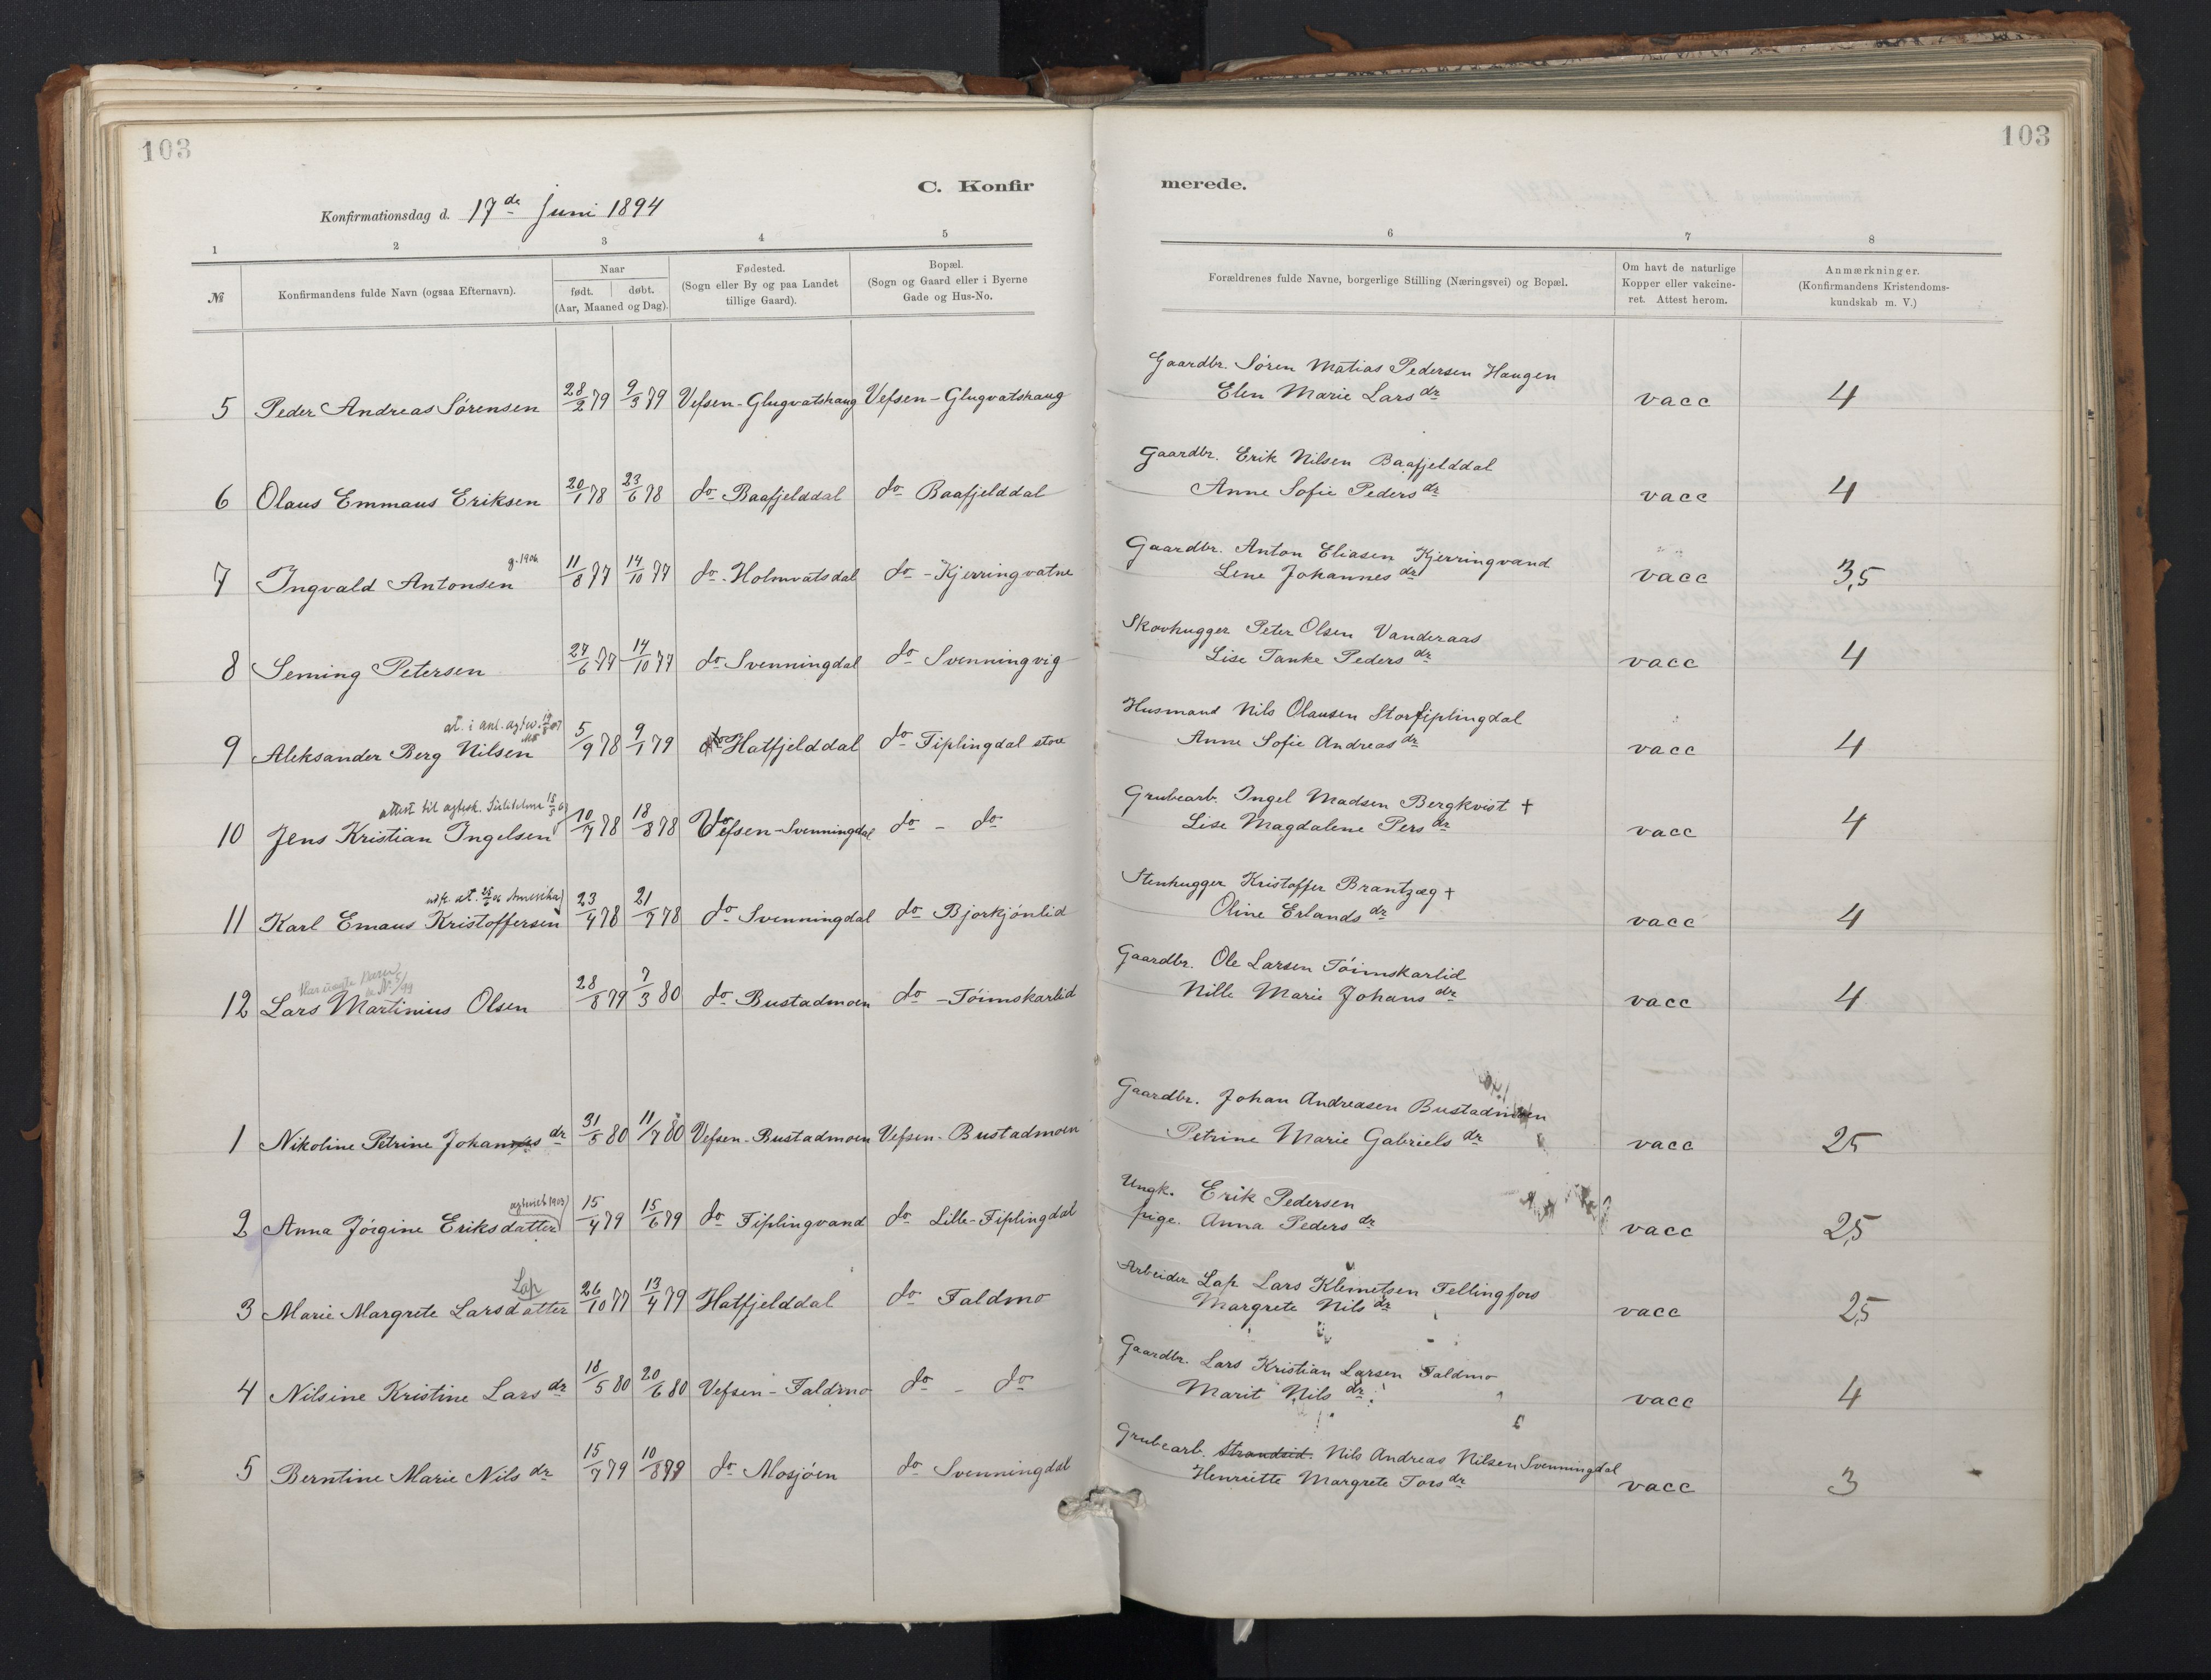 103
103
C. Konfir
merede.
Konfirmationsdag d. 17de Juni 1894
1 2 3 4 5
6 7 8
№ Konfirmandens fulde Navn (ogsaa Efternavn). Naar født. døbt. (Aar, Maaned og Dag). Fødested. (Sogn eller By og paa Landet tillige Gaard). Bopæl. (Sogn og Gaard eller i Byerne Gade og Hus-No.
Forældrenes fulde Navne, borgerlige Stilling (Næringsvei) og Bopæl. Om havt de naturlige Kopper eller vakcineret. Attest herom. Anmærkninger. (Konfirmandens Kristendomskundskab m. V.)
5 Peder Andreas Sørensen 28/2 79 9/3 79 Vefsen-Glugvatshaug Vefsen-Glugvatshaug
Gaardbr. Søren Matias Pedersen Haugen
Elen Marie Larsdr vacc 4
6 Olaus Emmaus Eriksen 20/1 78 23/6 78 do Baafjelddal do Baafjelddal
Gaardbr. Erik Nilsen Baafjelddal
Anne Sofie Pedersdr vacc 4
g. 1906
7 Ingvald Antonsen 11/8 77 14/10 77 do-Holmvatsdal do-Kjerringvatne
Gaardbr. Anton Eliasen Kjerringvand
Lene Johannesdr vacc 3,5
8 Seming Petersen 27/6 77 14/10 77 do Svenningdal do Svenningvig
Skovhugger Peter Olsen Vanderaas
Lise Tanke Pedersdr vacc 4
at. i anl.
9 Aleksander Berg Nilsen 5/9 78 9/1 79 Hatfjelddal do Fiplingdal store
Husmand Nils Olausen Storfiplingdal
Anne Sofie Andreasdr vacc 4
attest til
10 Jens Kristian Ingelsen 10/7 78 18/8 78 Vefsen-Svenningdal do - do
Grubearb. Ingel Madsen Bergkvist †
Lise Magdalene Persdr vacc 4
at. 25/6 06 Amerika
11 Karl Emaus Kristoffersen 23/4 78 21/7 78 do Svenningdal do Bjorkjónlid
Stenhugger Kristoffer Brantzæg †
Oline Erlandsdr vacc 4
Har uægte Barn
12 Lars Martinius Olsen 28/8 79 7/3 80 do Bustadmoen do-Tóimskarlid
Gaardbr. Ole Larsen Tóimskarlid
Nille Marie Johansdr vacc 4
1 Nikoline Petrine Johansdr 31/5 80 11/7 80 Vefsen-Bustadmoen Vefsen-Bustadmoen
Gaardbr. Johan Andreasen Bustadmoen
Petrine Marie Gabrielsdr vacc 25
1903
2 Anna Jórgine Eriksdatter 15/4 79 15/6 79 do Fiplingvand do Lille-Fiplingdal
Ungk. Erik Pedersen
pige. Anna Pedersdr vacc 2,5
Lap
3 Marie Margrete Larsdatter 26/10 77 13/4 79 Hatfjelddal do Faldmo
Arbeider Lap Lars Klemetsen Fellingfors
Margrete Nilsdr vacc 2,5
4 Nilsine Kristine Larsdr 18/5 80 20/6 80 Vefsen-Faldmo do - do
Gaardbr. Lars Kristian Larsen Faldmo
Marit Nilsdr vacc 4
5 Berntine Marie Nilsdr 15/7 79 10/8 79 do Mosjóen do Svenningdal
Grubearb. Strandsid. Nils Andreas Nilsen Svenningdal
Henriette Margrete Torsdr vacc 3